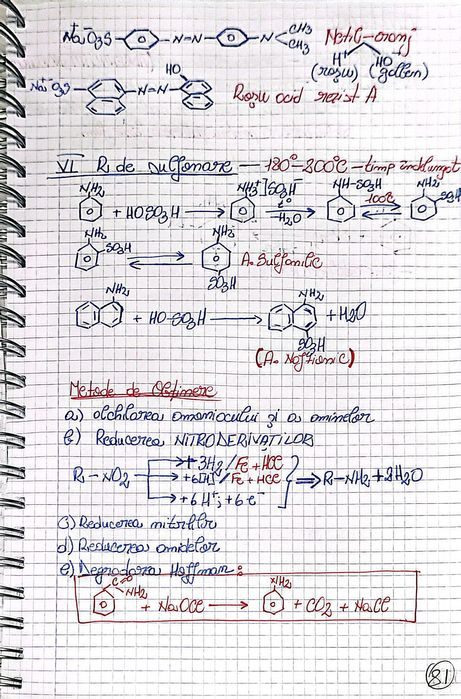 Na⁺ ⁻O₃S – N=N – N CH₃ CH₃ Metil-oranj
H⁺ HO⁻
(roșu) (galben)
Na⁺ ⁻O₃S – N=N – HO Roșu acid rezist A
VI R de sulfonare – 180°-200°C – timp îndelungat
NH₂ + HOSO₃H → NH₃⁺]SO₄H⁻ t° -H₂O NH-SO₃H 100°C NH₂ SO₃H
NH₂ SO₃H ⇌ NH₂ SO₃H A. Sulfanilic
NH₂ + HO-SO₃H → NH₂ SO₃H + H₂O
(A. Naftionic)
Metode de Obținere
a) alchilarea amoniacului și a aminelor
b) Reducerea NITRODERIVAȚILOR
R-NO₂ +3H₂/Fe + HCl
+6[H]/Fe + HCl ⇒ R-NH₂ + 2H₂O
+6H⁺; +6e⁻
c) Reducerea nitrililor
d) Reducerea amidelor
e) Degradarea Hoffman:
C=O NH₂ + NaOCl → NH₂ + CO₂ + NaCl
81